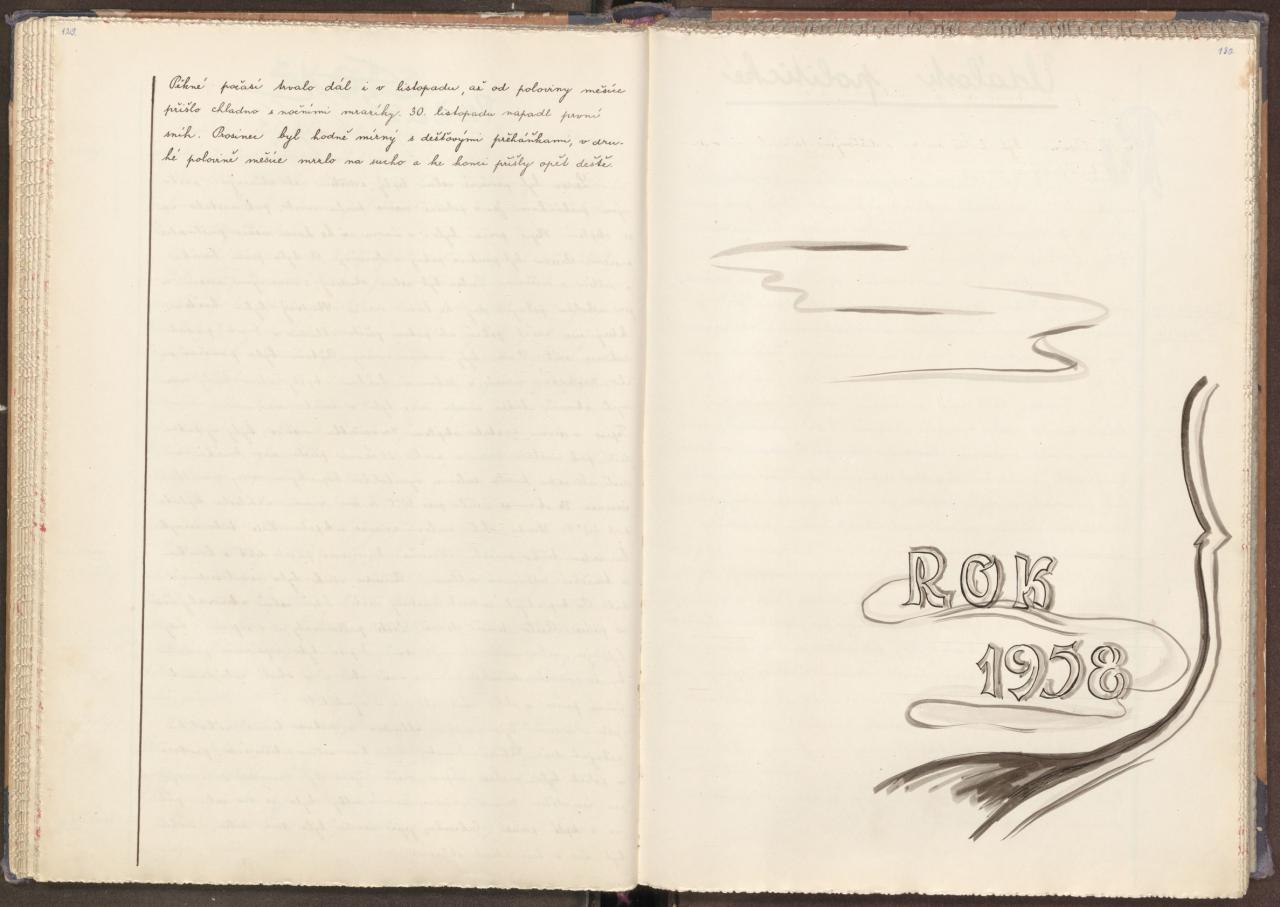 129.
Pěkné počasí trvalo dál i v listopadu, až od poloviny měsíce
přišlo chladno s nočními mrazíky. 30. listopadu napadl první
sníh. Prosinec byl hodně mírný s dešťovými přeháňkami, v dru-
hé polovině měsíce mrzlo na sucho a ke konci přišly opět deště.
130.
ROK
1958